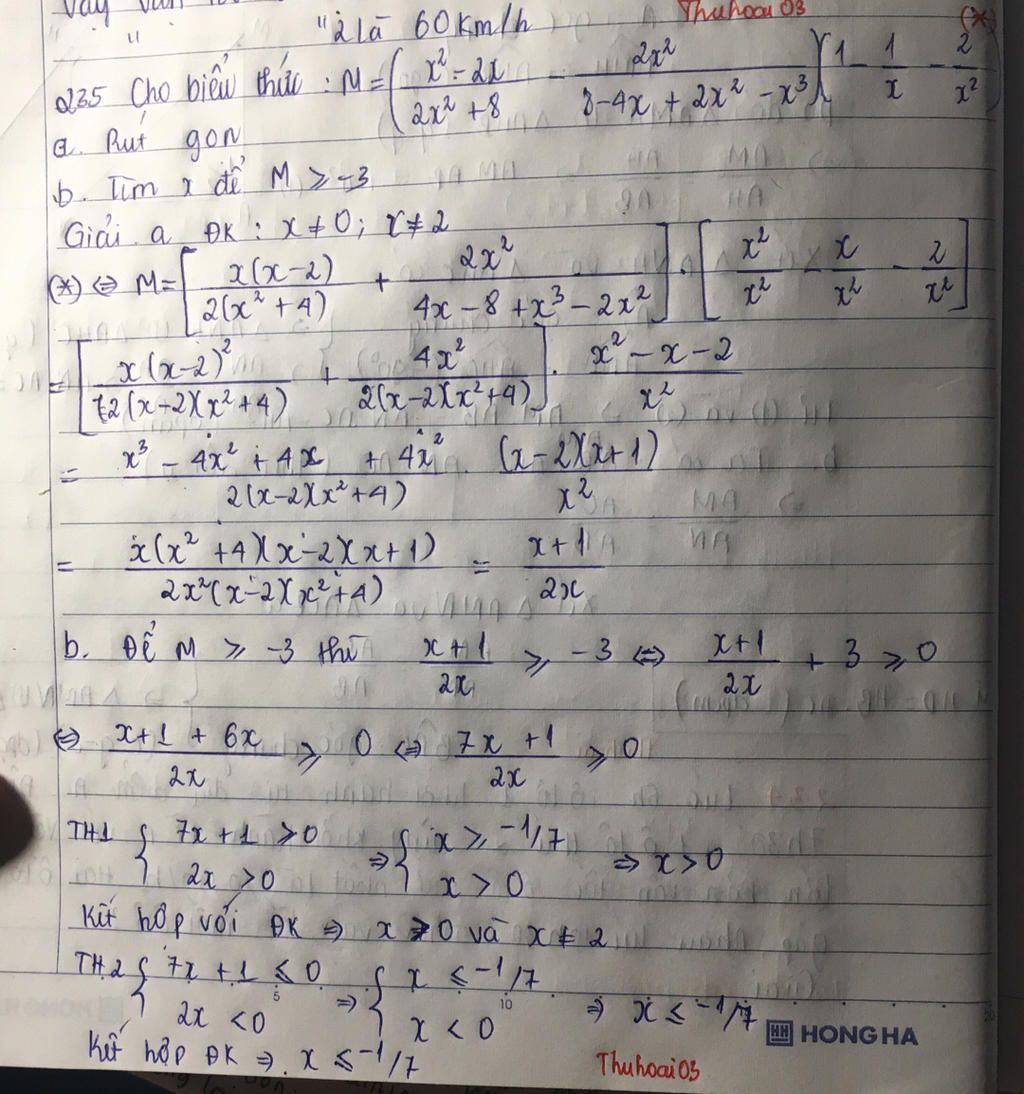 Vậy vận
" " " 2 là 60 km/h
Thuhoai03
(*)
235 Cho biểu thức : M = ( (x² - 2x)/(2x² + 8) - 2x²/(8 - 4x + 2x² - x³) )( 1 - 1/x - 2/x² )
a. Rút gọn
b. Tìm x để M ≥ -3
Giải a ĐK : x ≠ 0 ; x ≠ 2
(*) ⇔ M = [ x(x-2)/(2(x² + 4)) + 2x²/(4x - 8 + x³ - 2x²) ] . [ x²/x² - x/x² - 2/x² ]
= [ x(x-2)²/(2(x-2)(x²+4)) + 4x²/(2(x-2)(x²+4)) ] . (x² - x - 2)/x²
= (x³ - 4x² + 4x + 4x²)/(2(x-2)(x²+4)) . (x-2)(x+1)/x²
= x(x² + 4)(x-2)(x+1)/(2x²(x-2)(x²+4)) = (x+1)/2x
b. Để M ≥ -3 thì (x+1)/2x ≥ -3 ⇔ (x+1)/2x + 3 ≥ 0
⇔ (x+1 + 6x)/2x ≥ 0 ⇔ (7x + 1)/2x ≥ 0
TH1 { 7x + 1 ≥ 0 ; 2x > 0 ⇒ { x ≥ -1/7 ; x > 0 ⇒ x > 0
Kết hợp với ĐK ⇒ x > 0 và x ≠ 2
TH2 { 7x + 1 ≤ 0 ; 2x < 0 ⇒ { x ≤ -1/7 ; x < 0 ⇒ x ≤ -1/7
5 10 20
HH HONG HA
Kết hợp ĐK ⇒ x ≤ -1/7
Thuhoai03